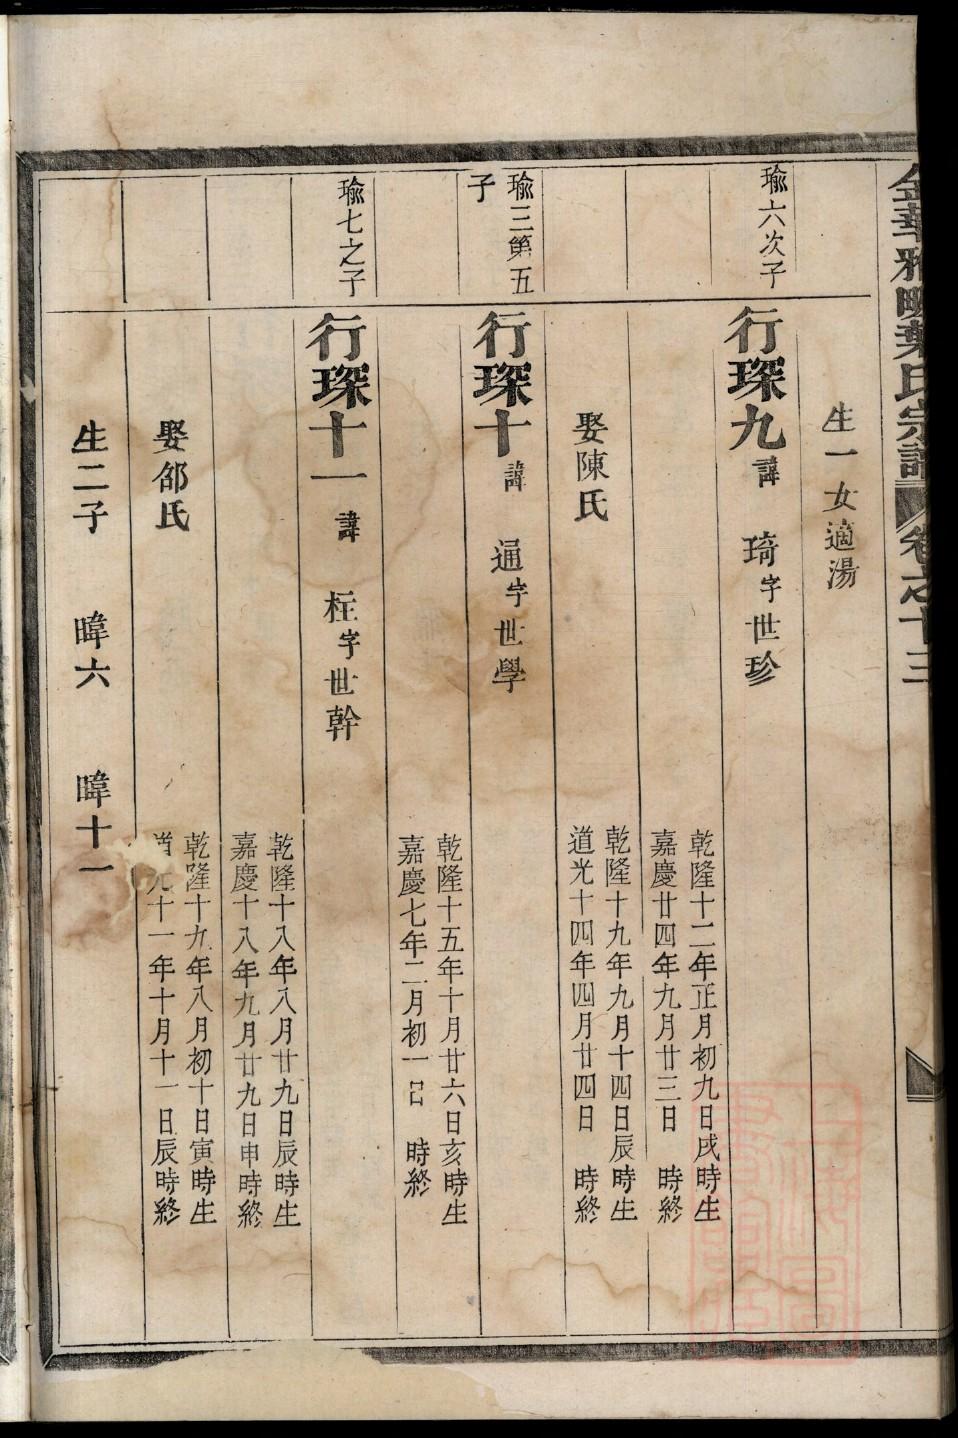 金華雅畈葉氏宗譜 卷之十三
生一女適湯
瑜六次子
行琛九 諱 琦 字 世珍
乾隆十二年正月初九日戌時生
嘉慶廿四年九月廿三日 時終
娶陳氏
乾隆十九年九月十四日辰時生
道光十四年四月廿四日 時終
瑜三第五
子
行琛十 諱 通 字 世學
乾隆十五年十月廿六日亥時生
嘉慶七年二月初一日 時終
瑜七之子
行琛十一 諱 枉 字 世幹
乾隆十八年八月廿九日辰時生
嘉慶十八年九月廿九日申時終
娶邵氏
乾隆十九年八月初十日寅時生
道光十一年十月十一日辰時終
生二子 暐六 暐十一